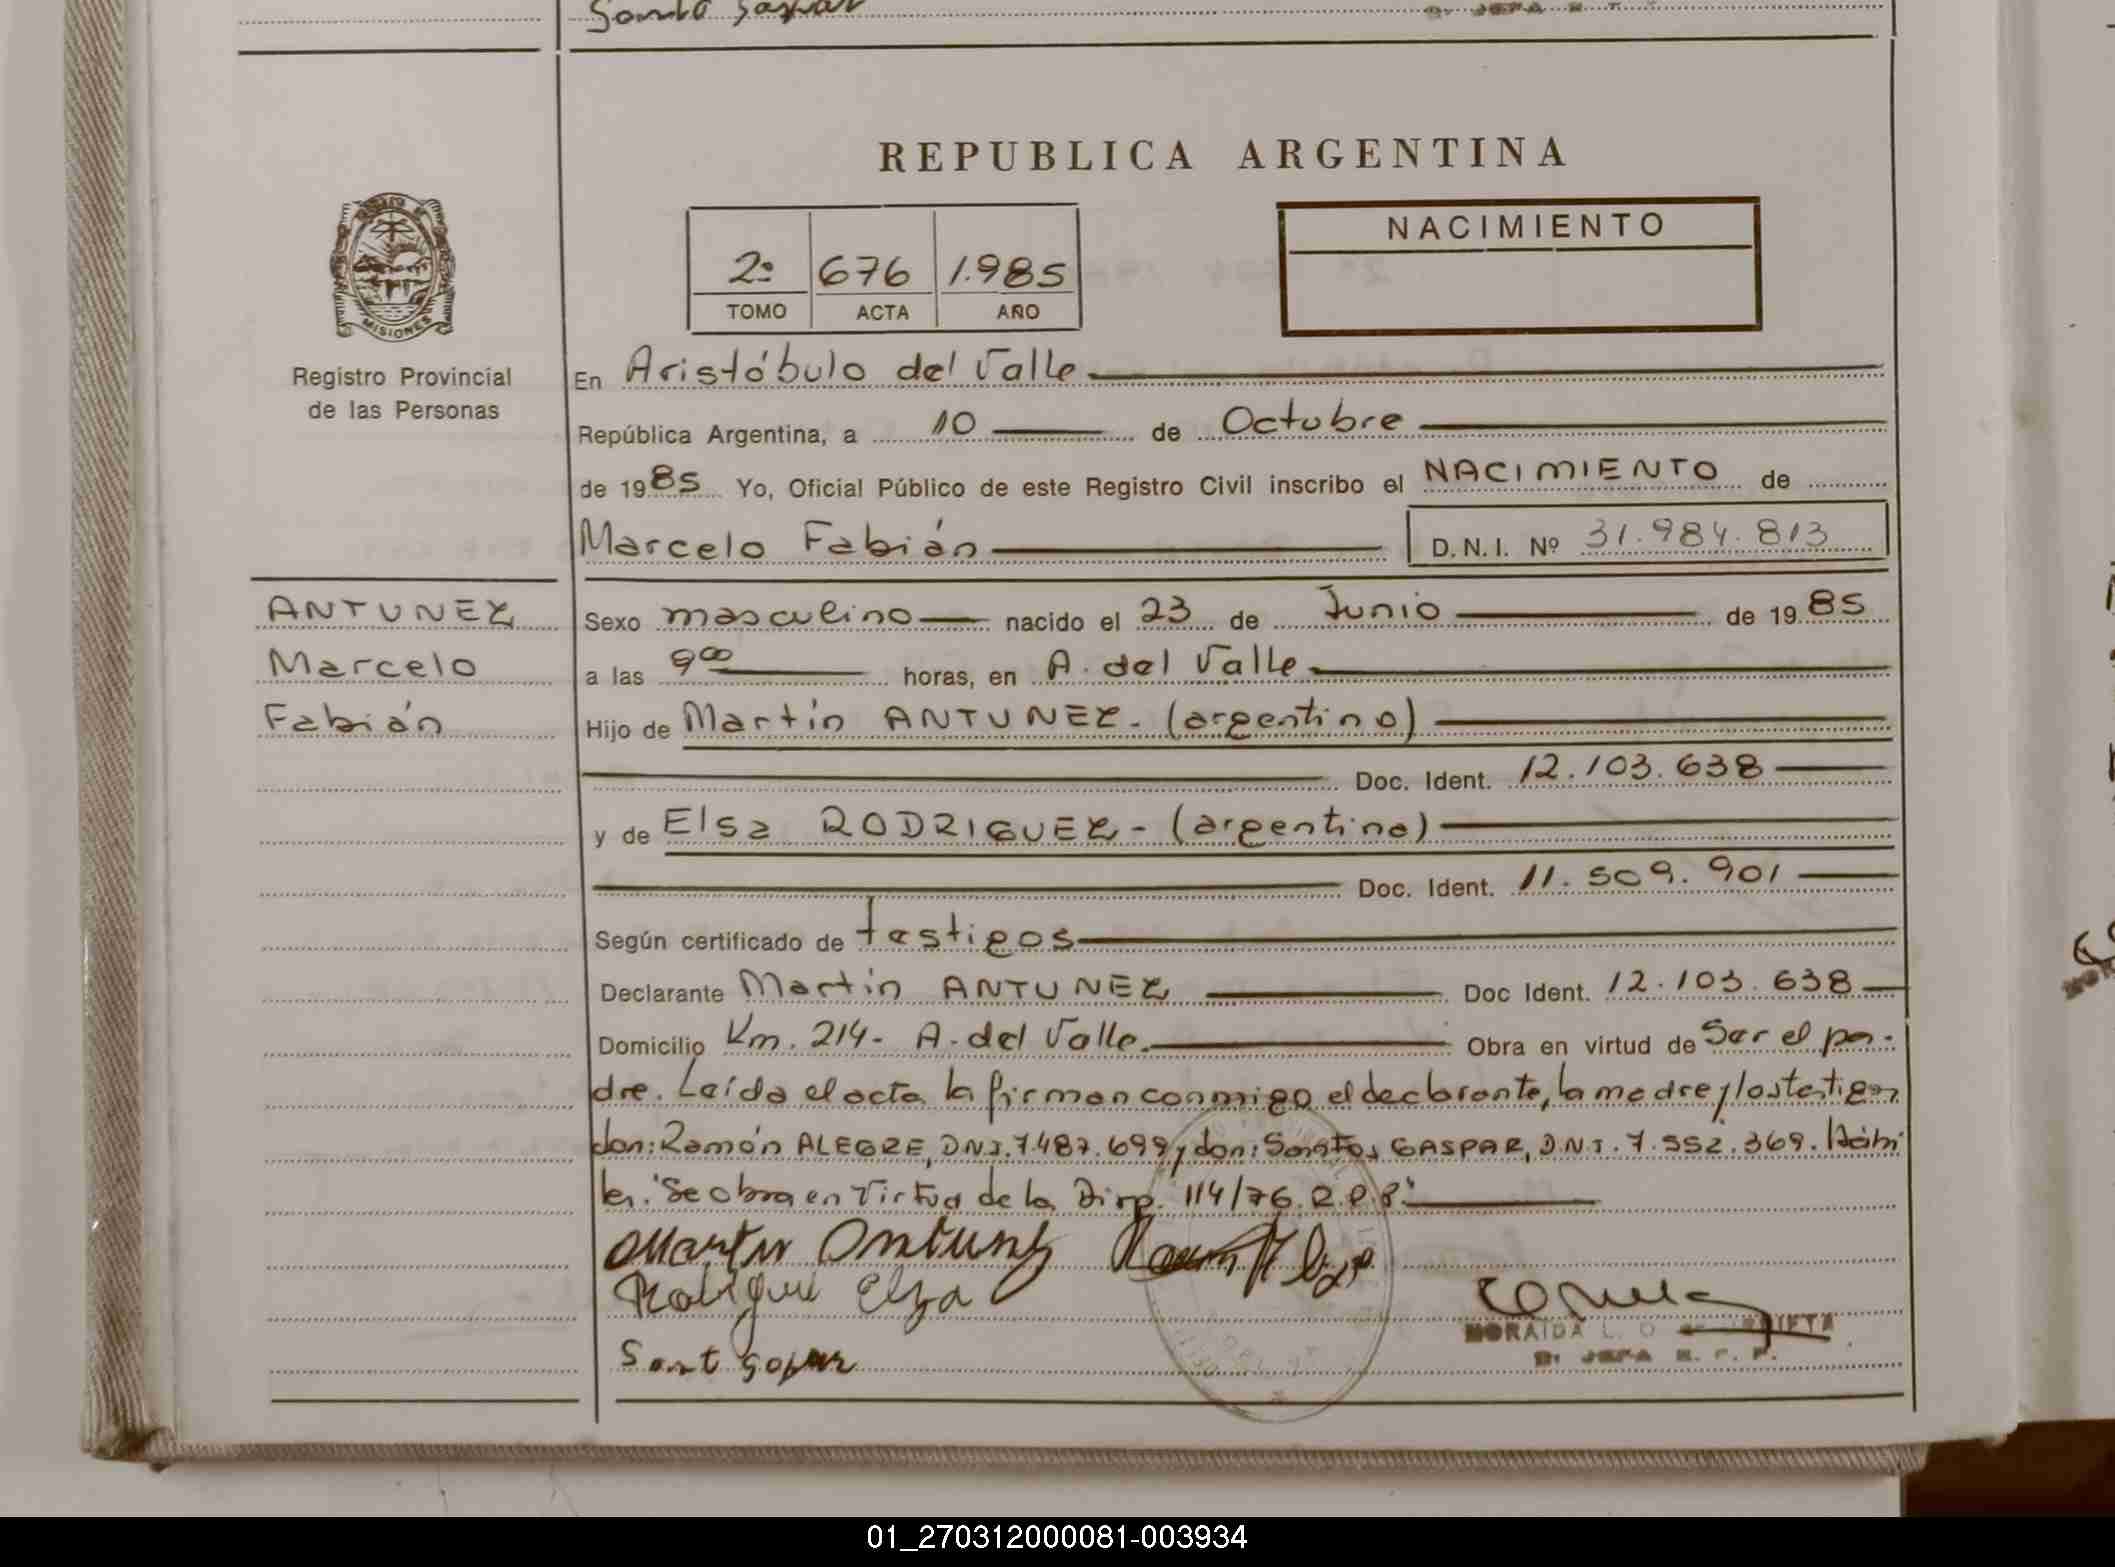 REPUBLICA ARGENTINA
MISIONES
Registro Provincial
de las Personas
2º 676 1.985
TOMO ACTA AÑO
NACIMIENTO
En Aristóbulo del Valle
República Argentina, a 10 de Octubre
de 1985 Yo, Oficial Público de este Registro Civil inscribo el NACIMIENTO de
Marcelo Fabián D.N.I. Nº 31.984.813
ANTUNEZ
Marcelo
Fabián
Sexo masculino nacido el 23 de Junio de 1985
a las 9⁰⁰ horas, en A. del Valle
Hijo de Martín ANTUNEZ - (argentino)
Doc. Ident. 12.103.638
y de Elsa RODRIGUEZ - (argentina)
Doc. Ident. 11.509.901
Según certificado de testigos
Declarante Martín ANTUNEZ Doc Ident. 12.103.638
Domicilio Km. 214 - A. del Valle. Obra en virtud de Ser el pa-
dre. Leída el acta la firman conmigo el declarante, la madre y los testigos
don: Ramón ALEGRE, D.N.I. 7.487.699 y don: Santos GASPAR, D.N.I. 7.552.369. Hábi
les. "Se obra en virtud de la Disp. 114/76. R.P.P."
Martin Antunez
Rodriguez Elza
Sant Gaspar
MORAIDA L.
JEFA R. P. P.
01_270312000081-003934